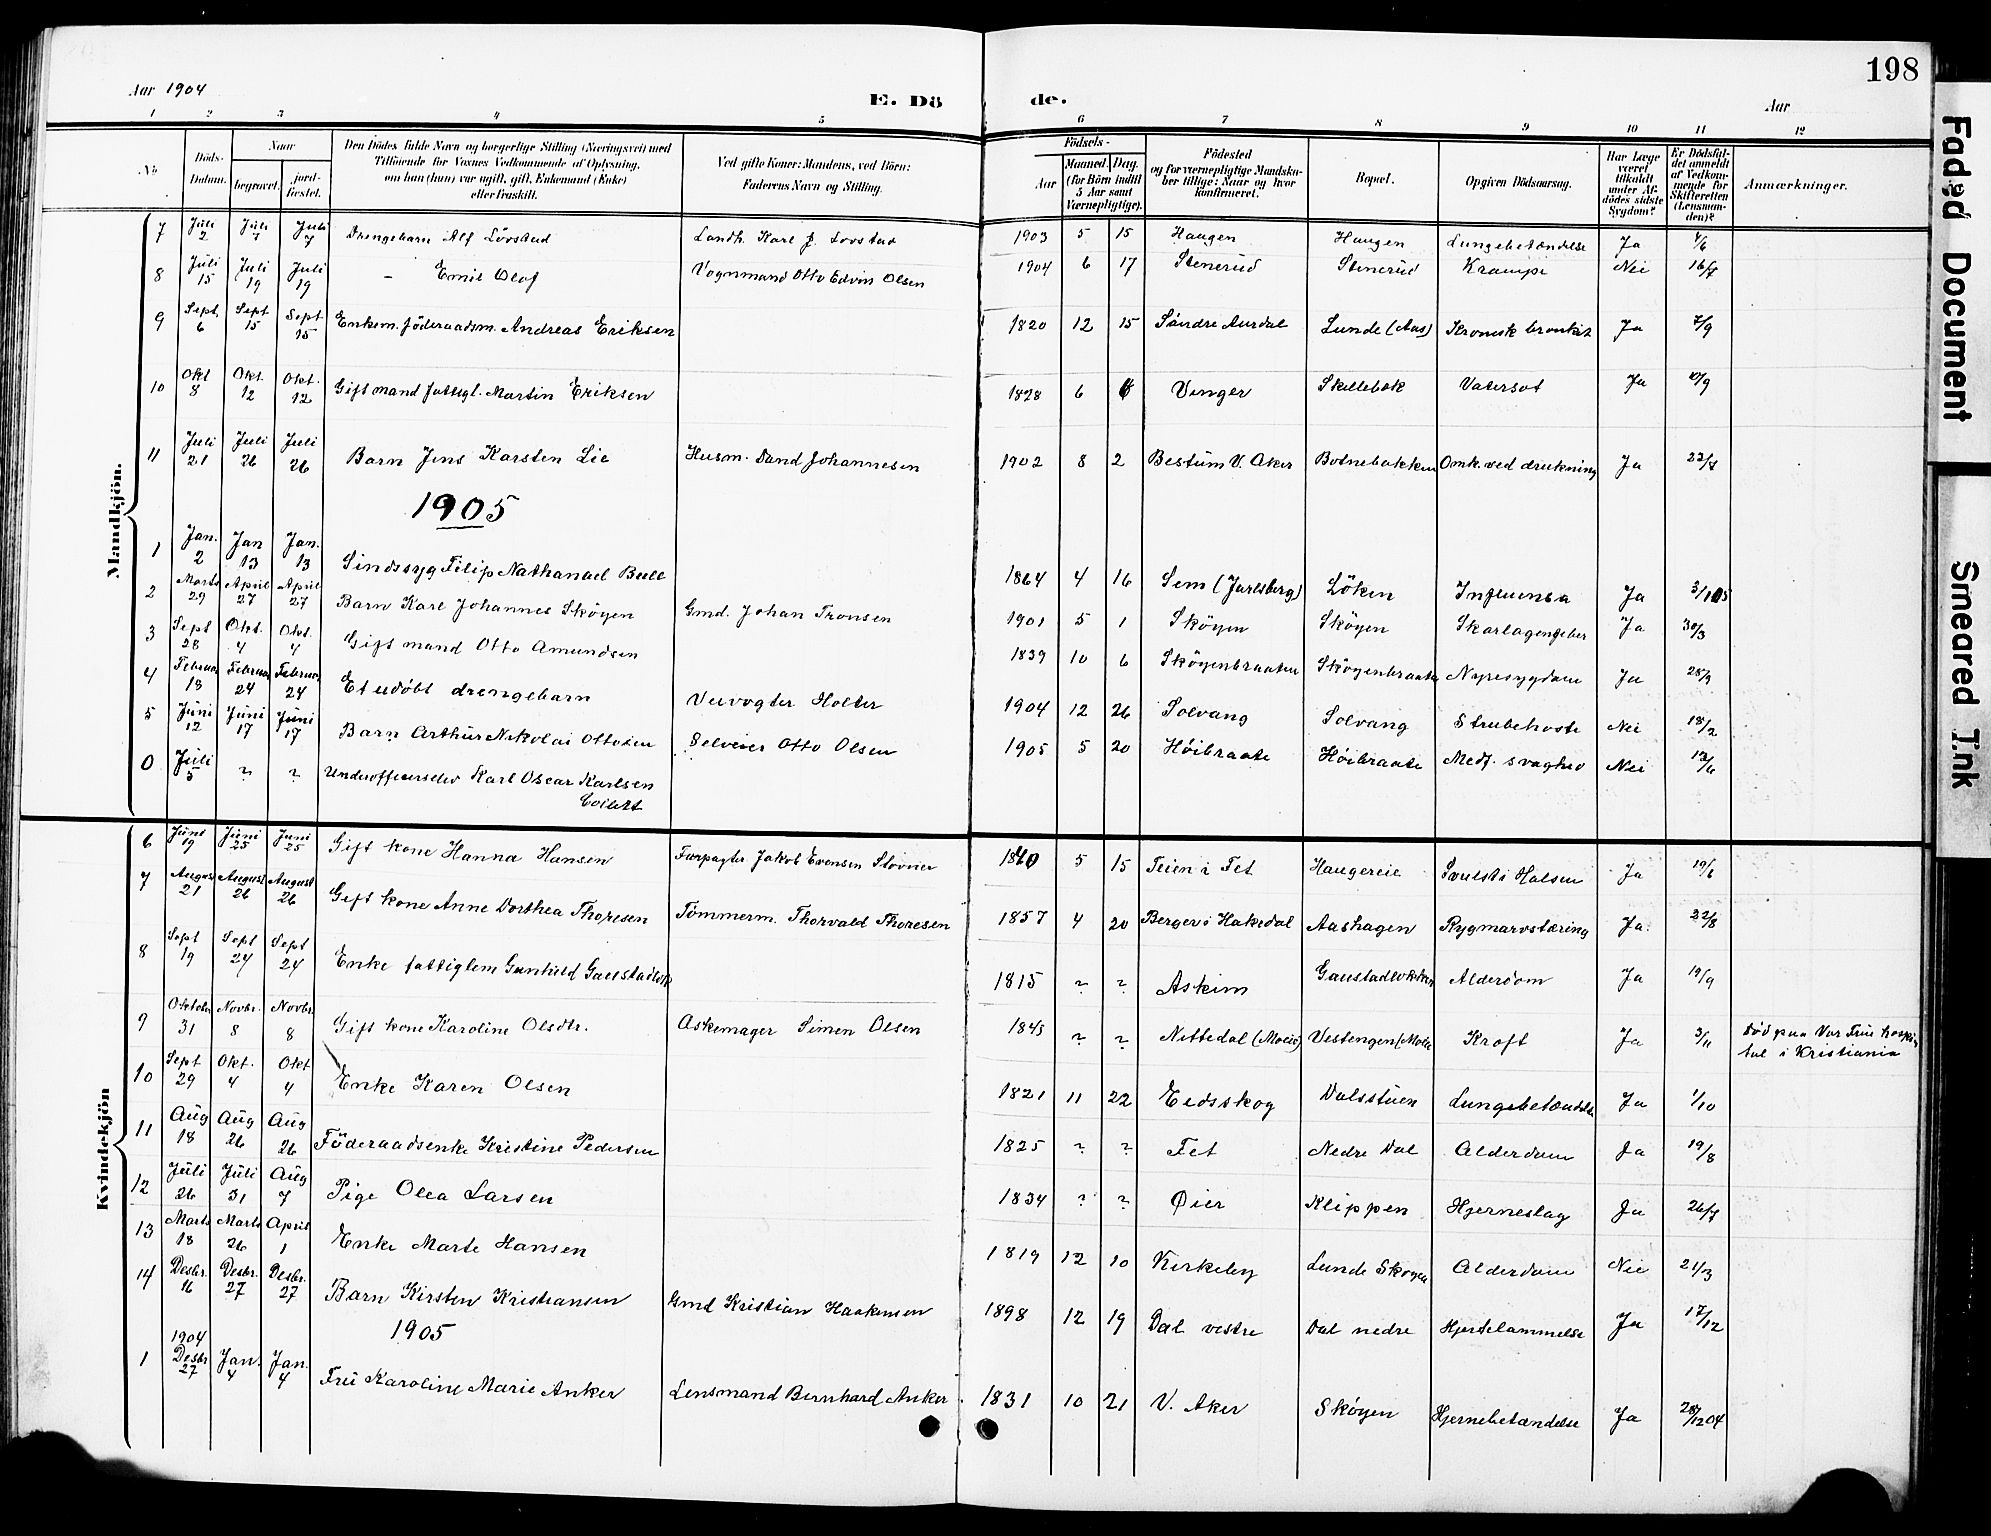 198
Aar 1904
E. Dö de.
Aar
1 2 3 4 5 6 7 8 9 10 11 12
No
Döds-Datum.
Naar
begravet.
jord-fæstet.
Den Dödes fulde Navn og borgerlige Stilling (Næringsvei) med
Tilföiende for Voxnes Vedkommende af Oplysning,
om han (hun) var ugift, gift, Enkemand (Enke)
eller fraskilt.
Ved gifte Koner: Mandens, ved Börn:
Faderens Navn og Stilling.
Födsels-
Aar
Maaned. Dag.
(for Börn indtil
5 Aar samt
Værnepligtige).
Födested
og for værnepligtige Mandska-
ber tillige: Naar og hvor
konfirmeret.
Bopæl.
Opgiven Dödsaarsag.
Har Læge
været
tilkaldt
under Af-
dödes sidste
Sygdom?
Er Dödsfal-
det anmeldt
af Vedkom-
mende for
Skifteretten
(Lensman-
den)?
Anmærkninger.
Mandkjön.
7 Juli 2 Juli 7 Juli 7 Drengebarn Alf Lövstad Landh. Karl J. Lovstad 1903 5 15 Haugen Haugen Lungebetændelse Ja 4/6
8 Juli 15 Juli 19 Juli 19 – Emil Olof Vognmand Otto Edvin Olsen 1904 6 17 Stenerud Stenerud Krampe Nei 16/7
9 Sept. 6 Sept 15 Sept 15 Enkem. föderaadsm. Andreas Eriksen 1820 12 15 Söndre Aurdal Lunde (Aas) Kronisk bronkit Ja 7/9
10 Okt 8 Okt. 12 Okt. 12 Gift mand fattigl. Martin Eriksen 1828 6 Vinger Skillebæk Vatersot Ja
11 Juli 21 Juli 26 Juli 26 Barn Jens Karsten Lie Husm. Johannesen 1902 8 2 Bestum V. Aker Botnebakken Omk. ved drukning Ja 22/7
1905
1 Jan. 2 Jan 13 Jan. 13 Sindssyg Filip Nathanael Bull 1864 4 16 Sem (Jarlsberg) Löken Influensa Ja
2 Marts 29 April 27 April 27 Barn Karl Johannes Sköyen Gmd. Johan Tronsen 1901 5 1 Sköyen Sköyen Skarlagensfeber Ja 30/3
3 Sept 28 Okt. 4 Okt. 4 Gift mand Otto Amundsen 1839 10 6 Sköyenbraaten Sköyenbraaten Nyresygdom Ja 28/9
4 Februar 18 Februar 24 Februar 24 Et udöbt drengebarn Veivogter Holter 1904 12 26 Solvang Solvang Strubehoste Nei 18/2
5 Juni 12 Juni 17 Juni 17 Barn Arthur Nikolai Ottosen Selveier Otto Olsen 1905 5 20 Höibraate Höibraate Medf. svaghed Nei 13/6
0 Juli 5 ? ? Underofficerselev Karl Oscar Karlsen
Kvindekjön
6 Juni 19 Juni 25 Juni 25 Gift kone Hanna Hansen Forpagter Jakob Evensen Stovner 1840 5 15 Teien i Fet Haugereie Svulst i Halsen Ja 19/6
7 August 21 August 26 August 26 Gift kone Anne Dorthea Thoresen Tömmerm. Thorvald Thoresen 1857 4 20 Berger i Hakedal Aashagen Rygmarvstæring Ja. 22/8
8 Sept 19 Sept 24 Sept 24 Enke fattiglem Gunhild 1815 ? ? Askim Gaustadbakken Alderdom Ja 19/9
9 Oktober 31 Novbr. 8 Novbr. 8 Gift kone Karoline Olsdtr. Askemager Simen Olsen 1843 ? ? Nittedal Vestengen Kræft Ja 3/11 död paa Vor Frue hospi-
tal i Kristiania
10 Sept 29 Okt. 4 Okt 4 Enke Karen Olsen 1821 11 22 Eidsskog Dalsstuen Lungebetændelse Ja 1/10
11 Aug 18 Aug 26 Aug 26 Föderaadsenke Kristine Pedersen 1825 ? ? Fet Nedre Dal Alderdom Ja 19/8
12 Juli 26 Juli 31 Aug 7 Pige Olea Larsen 1834 ? ? Øier Klippen Hjerneslag Ja 26/7
13 Marts 18 Marts 26 April 1 Enke Marte Hansen 1819 12 10 Kirkeby Lunde Skoyen Alderdom Nei 21/3
14 Desbr. 16 Desbr. 27 Desbr. 27 Barn Kirsten Kristiansen Gmd Kristian Haakensen 1898 12 19 Dal vestre Dal nedre Hjertelammelse Ja 17/12
1905
1 1904 Desbr 27 Jan. 4 Jan. 4 Fru Karoline Marie Anker Lensmand Bernhard Anker 1831 10 21 V. Aker Sköyen Hjernebetændelse Ja 28/12 04
Faded Document
Smeared Ink